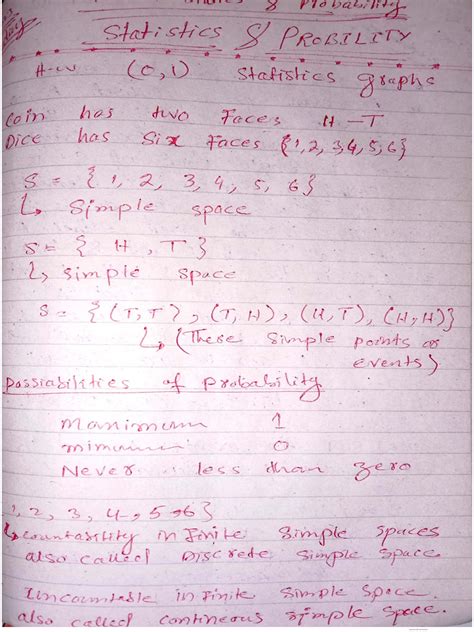 & Probability
Statistics & PROBILITY
H-w (0,1) Statistics graphs
Coin has two Faces H-T
Dice has Six Faces {1,2,3,4,5,6}
S = { 1, 2, 3, 4, 5, 6}
↳ Simple space
S = { H, T }
↳ simple space
S = {(T,T), (T,H), (H,T), (H,H)}
↳ (These Simple points or
events)
Possiabilities of Probability
manimum 1
mimimum 0
Never less than zero
1, 2, 3, 4, 5, 6}
↳ countability infinite Simple Spaces
also called Discrete Simple Space
Uncountable infinite Simple Space.
also called contineous simple space.